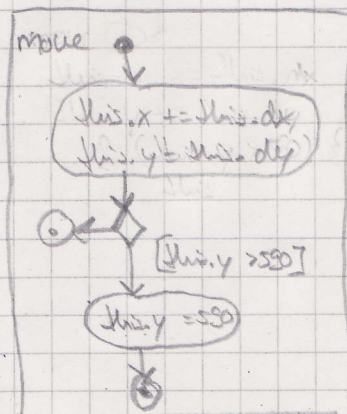 move
this.x += this.dx
this.y += this.dy
[this.y >590]
this.y = 590